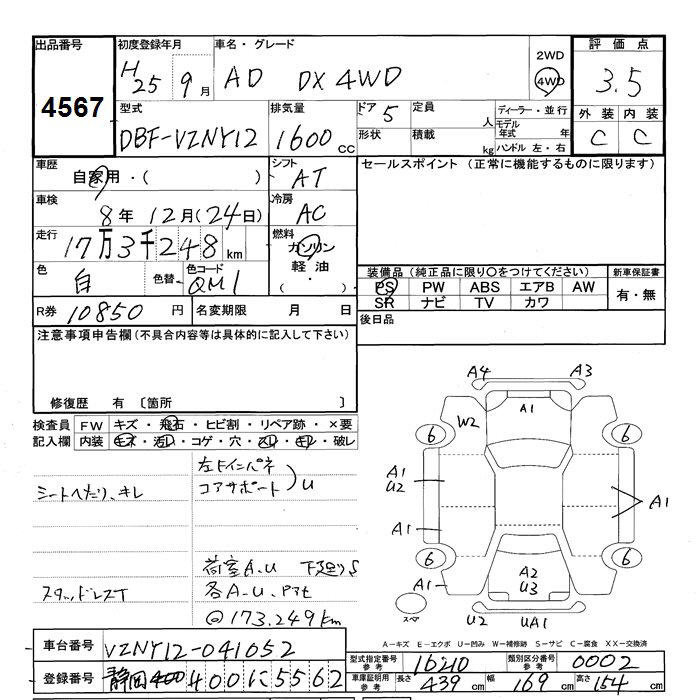 出品番号 初度登録年月 車名・グレード 評価点
4567 H25 9月 AD DX 4WD 2WD 4WD 3.5
型式 排気量 ドア 5 定員 人 ディーラー・並行 外装 内装
DBF-VZNY12 1600 cc 形状 積載 kg モデル年式 年 ハンドル 左・右 C C
車歴 自家用・( ) シフト AT セールスポイント (正常に機能するものに限ります)
車検 8年 12月(24日) 冷房 AC
走行 17万3千248km 燃料 ガソリン
軽油・( )
色 白 色替 色コード QM1 装備品 (純正品に限り○をつけてください) 新車保証書
PS PW ABS エアB AW 有・無
SR ナビ TV カワ
R券 10850円 名変期限 月 日 後日品
注意事項申告欄(不具合内容等は具体的に記入して下さい)
修復歴 有 〔箇所 〕
検査員 FW キズ・飛石・ヒビ割・リペア跡・×要
記入欄 内装 キズ・汚レ・コゲ・穴・スレ・キレ・破レ
シートへたり、キレ
左Fインパネ
コアサポート )U
荷室A.U 下廻りS
スタッドレスT 各A-U
@173.249km
A4 A3
W2 A1
6 6
A1
U2
A1 A1
6 6
A1 A2
U3
スペア U2 UA1
A-キズ E-エクボ U-凹み W-補修跡 S-サビ C-腐食 XX-交換済
車台番号 VZNY12-041052
型式指定番号 参考 16210 類別区分番号 参考 0002
登録番号 静岡400 400 に 5562
車庫証明用 参考 長さ 439cm 幅 169cm 高さ 154cm